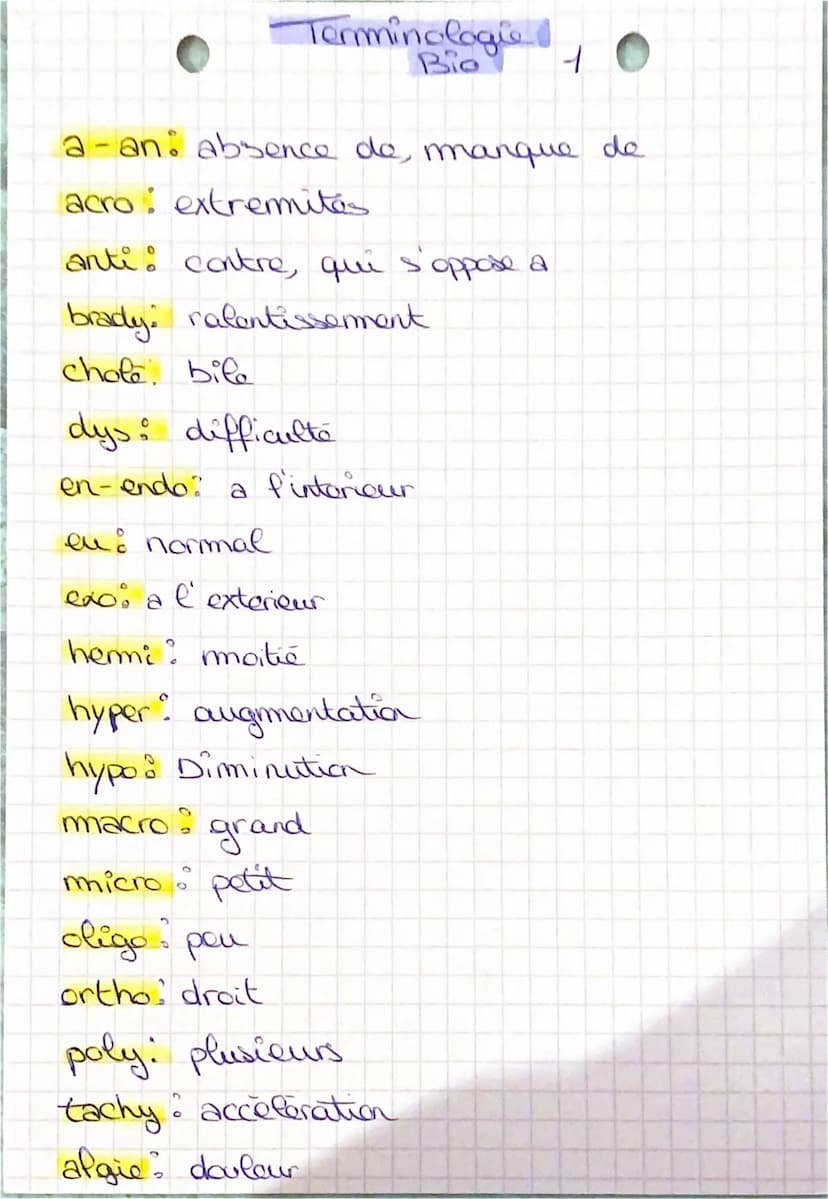 Terminologie
Bio 1
a-an: absence de, manque de
acro: extremités
anti: contre, qui s'oppose a
brady: ralentissement
cholé: bile
dys: difficulté
en-endo: a l'interieur
eu: normal
exo: a l'exterieur
hemi: moitié
hyper: augmentation
hypo: Diminution
macro: grand
micro: petit
oligo: peu
ortho: droit
poly: plusieurs
tachy: accélération
algie: douleur